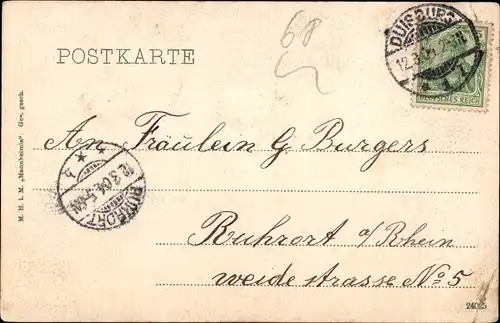 6P
DUISBURG
12.3.04. 2-3N
DEUTSCHES REICH
POSTKARTE
An Fräulein G Burgers
RUHRORT
12.3.04. 5-6N
Ruhrort a/Rhein
weide strasse No 5
M. H. i. M. „Mannheimia“ Ges. gesch.
24025